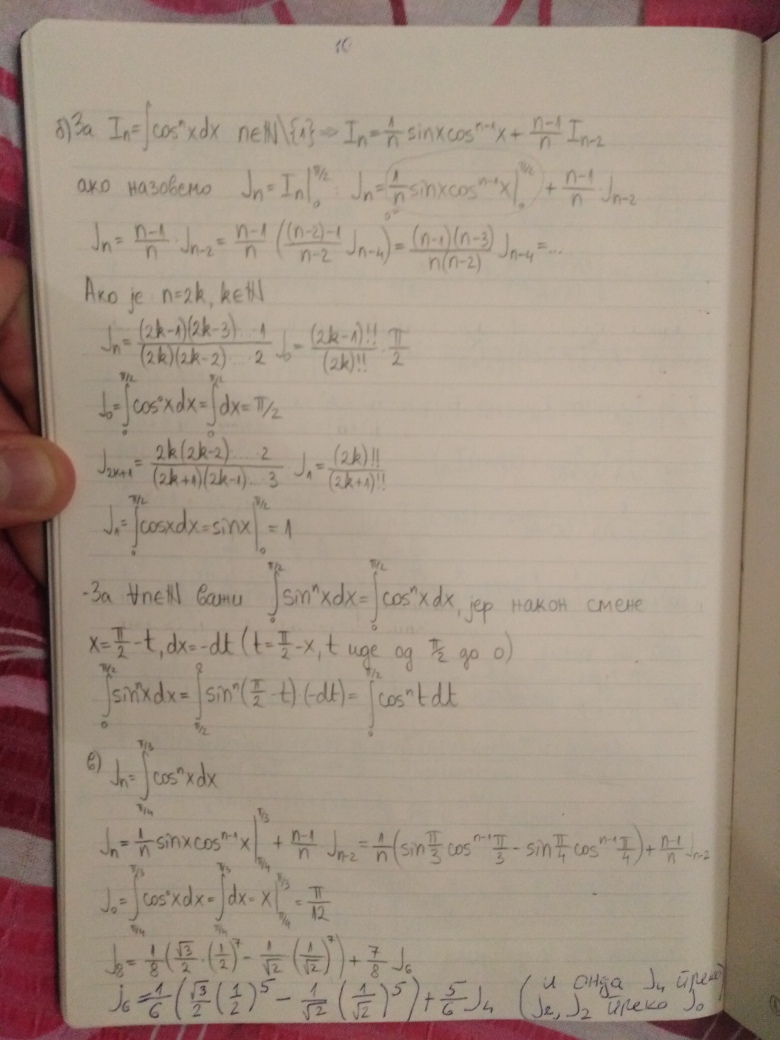 10
б) За Iₙ = ∫cosⁿxdx n∈ℕ\{1} ⇒ Iₙ = 1/n sinxcosⁿ⁻¹x + (n-1)/n Iₙ₋₂
ако назовемо Jₙ = Iₙ|₀^{π/2} : Jₙ = 1/n sinxcosⁿ⁻¹x|₀^{π/2} + (n-1)/n Jₙ₋₂
0=
Jₙ = (n-1)/n · Jₙ₋₂ = (n-1)/n (((n-2)-1)/(n-2) Jₙ₋₄) = (n-1)(n-3)/(n(n-2)) Jₙ₋₄ = ...
Ако је n=2k, k∈ℕ
Jₙ = (2k-1)(2k-3)...1/((2k)(2k-2)...2) J₀ = (2k-1)!!/(2k)!! · π/2
J₀ = ∫₀^{π/2} cos⁰xdx = ∫₀^{π/2} dx = π/2
J₂ₖ₊₁ = 2k(2k-2)....2/((2k+1)(2k-1)...3) J₁ = (2k)!!/(2k+1)!!
J₁ = ∫₀^{π/2} cosxdx = sinx|₀^{π/2} = 1
-За ∀n∈ℕ важи ∫₀^{π/2} sinⁿxdx = ∫₀^{π/2} cosⁿxdx, јер након смене
x = π/2 - t, dx = -dt (t = π/2 - x, t иде од π/2 до 0)
∫₀^{π/2} sinⁿxdx = ∫_{π/2}^{0} sinⁿ(π/2 - t)·(-dt) = ∫₀^{π/2} cosⁿtdt
в) Jₙ = ∫_{π/4}^{π/3} cosⁿxdx
Jₙ = 1/n sinxcosⁿ⁻¹x|_{π/4}^{π/3} + (n-1)/n Jₙ₋₂ = 1/n (sin π/3 cosⁿ⁻¹ π/3 - sin π/4 cosⁿ⁻¹ π/4) + (n-1)/n Jₙ₋₂
J₀ = ∫_{π/4}^{π/3} cos⁰xdx = ∫_{π/4}^{π/3} dx = x|_{π/4}^{π/3} = π/12
J₈ = 1/8 (√3/2 · (1/2)⁷ - 1/√2 · (1/√2)⁷) + 7/8 J₆
J₆ = 1/6 (√3/2 (1/2)⁵ - 1/√2 (1/√2)⁵) + 5/6 J₄ (и онда J₄ преко
J₂, J₂ преко J₀)